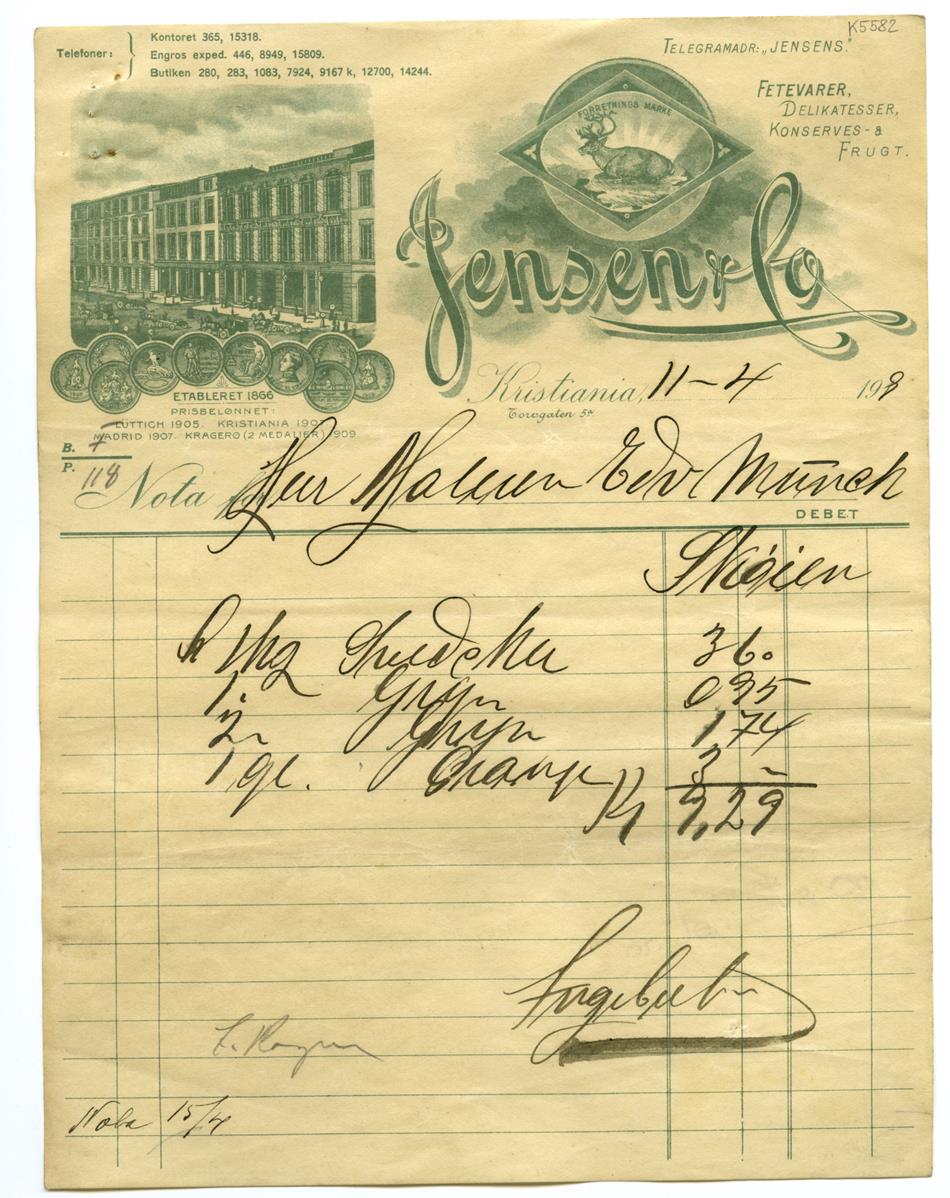 K5582
Telefoner:
Kontoret 365, 15318.
Engros exped. 446, 8949, 15809.
Butiken 280, 283, 1083, 7924, 9167 k, 12700, 14244.
TELEGRAMADR: „JENSENS."
FETEVARER,
DELIKATESSER,
KONSERVES- &
FRUGT.
FORRETNINGS MÆRKE
Jensen & Co
Kristiania, 11-4 198
Torvgaten 5a
ETABLERET 1866
PRISBELØNNET:
LÜTTICH 1905. KRISTIANIA 190
MADRID 1907. KRAGERØ (2 MEDALJER) 1909
B. F
P. 118
Nota Herr Maleren Edv Münch
DEBET
Skøien
1 kg 36.
1 Gryn 095
2 Gryn 1 74
1 gl. Orange 3 -
Kr 9,29
Nota 15/4